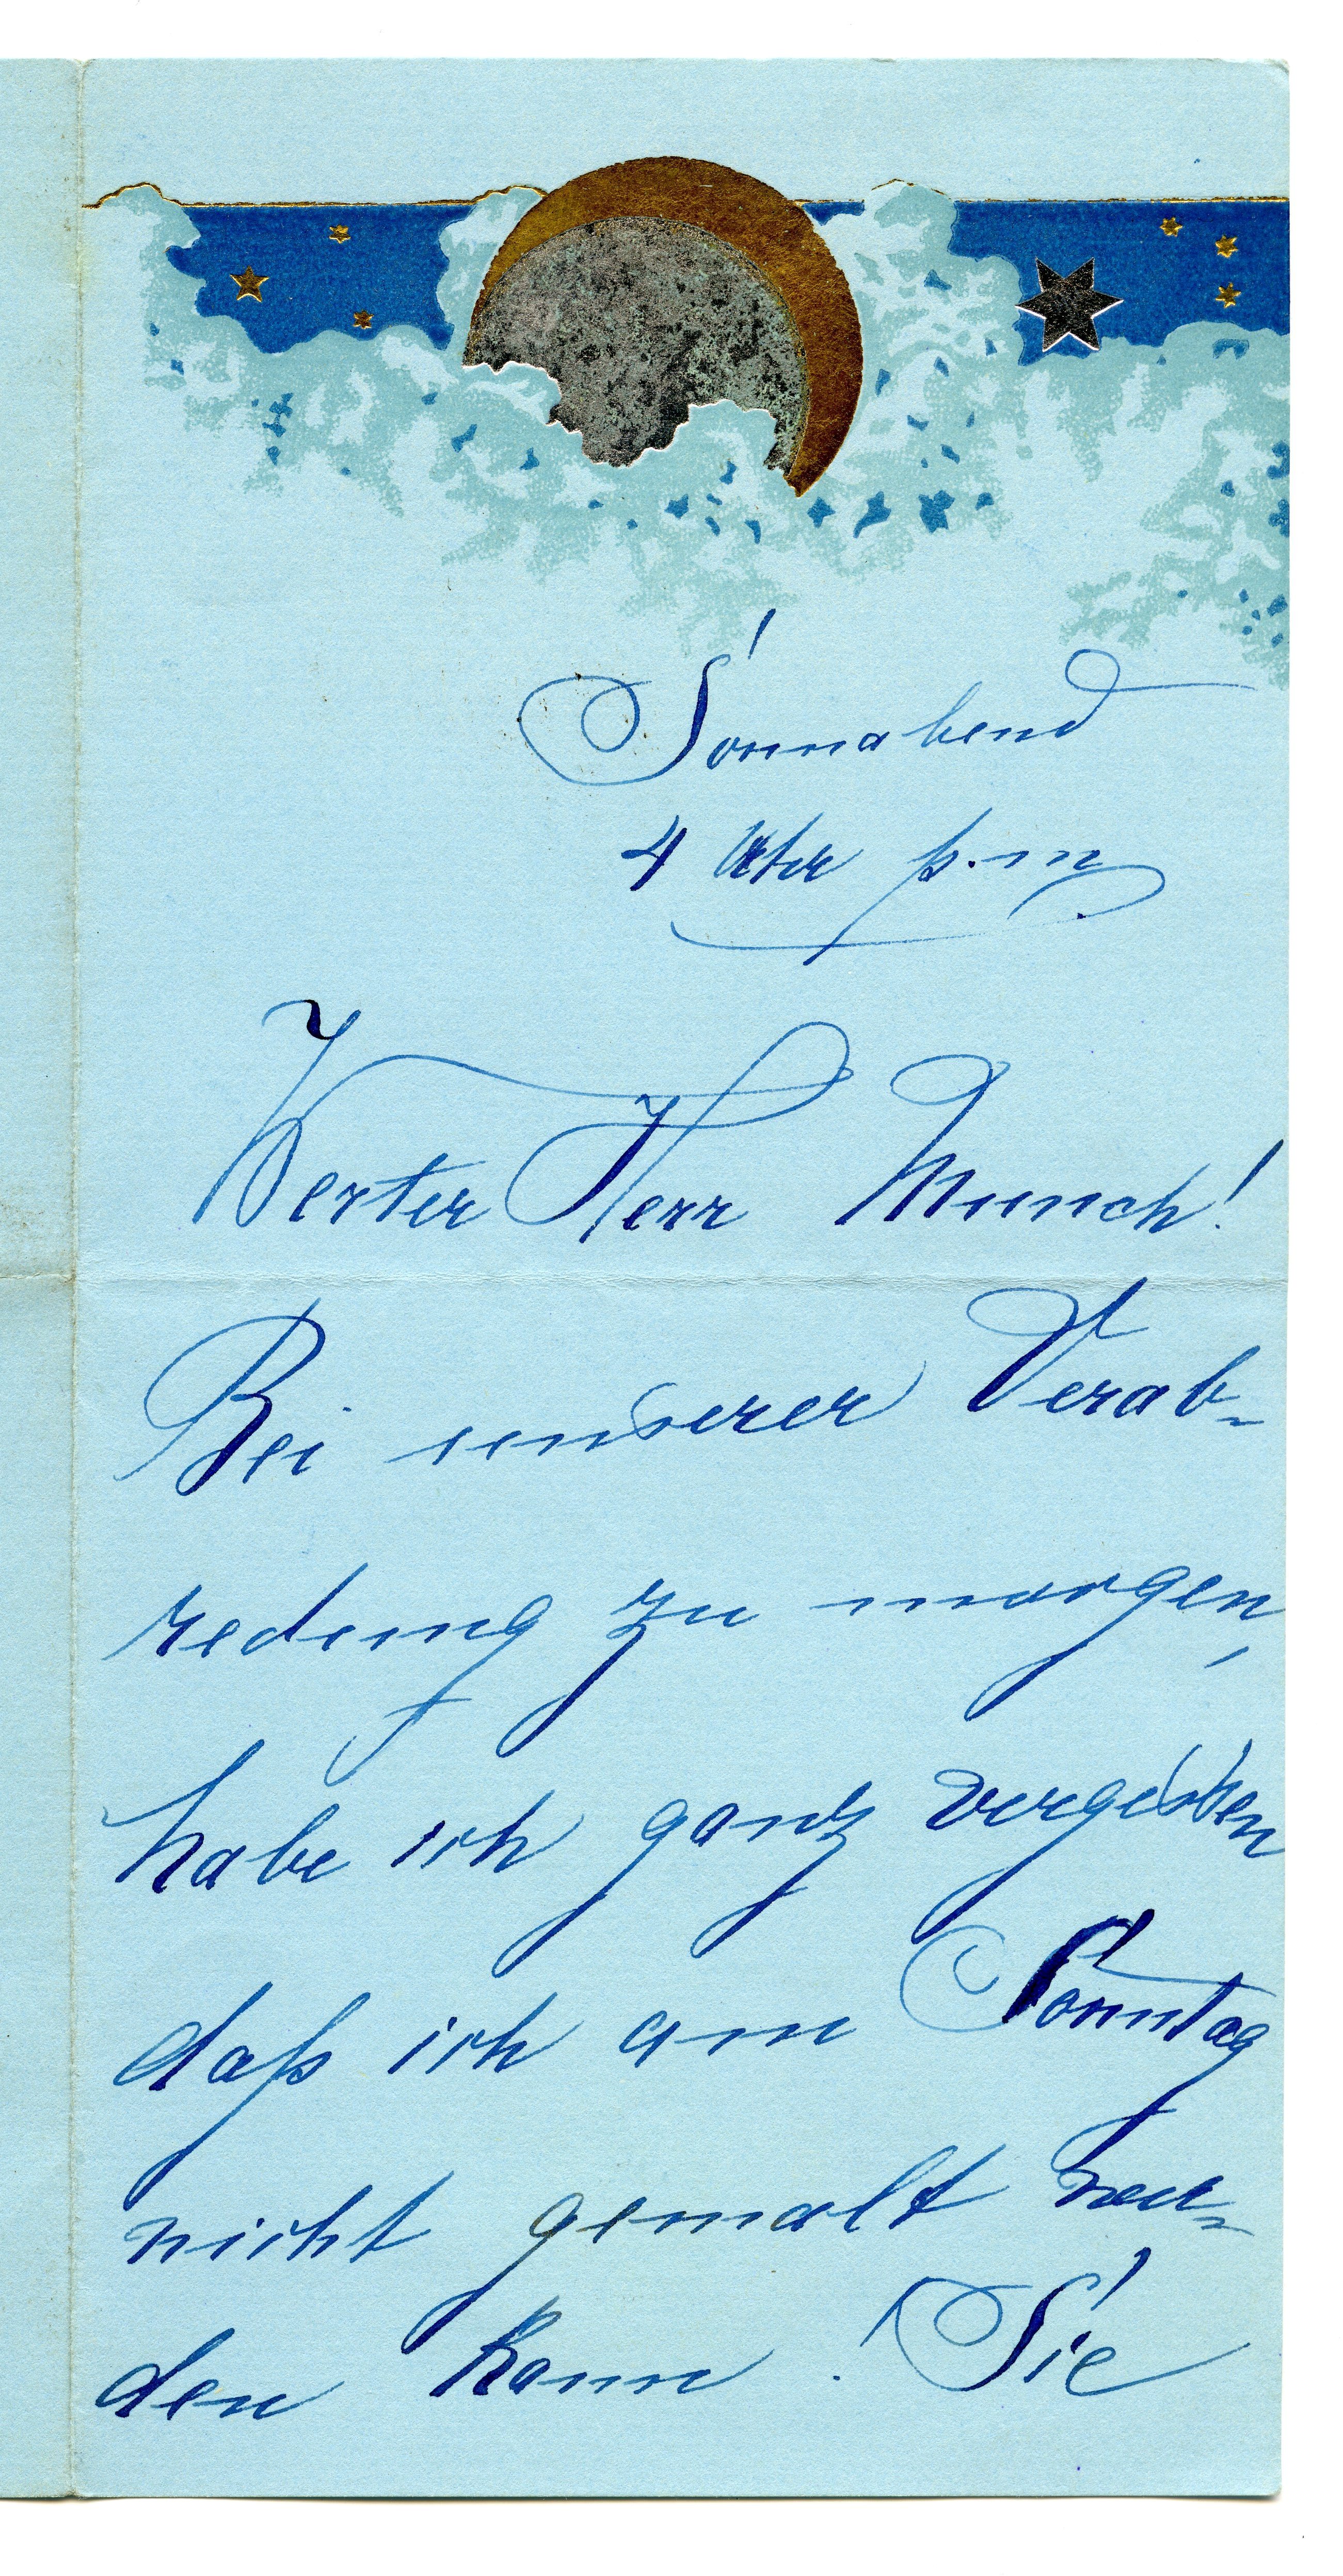 Sonnabend
4 Uhr p.m.
Werter Herr Munch!
Bei unserer Verab-
redung zu morgen,
habe ich ganz vergessen
daß ich am Sonntag
nicht gemalt wer-
den kann. Sie